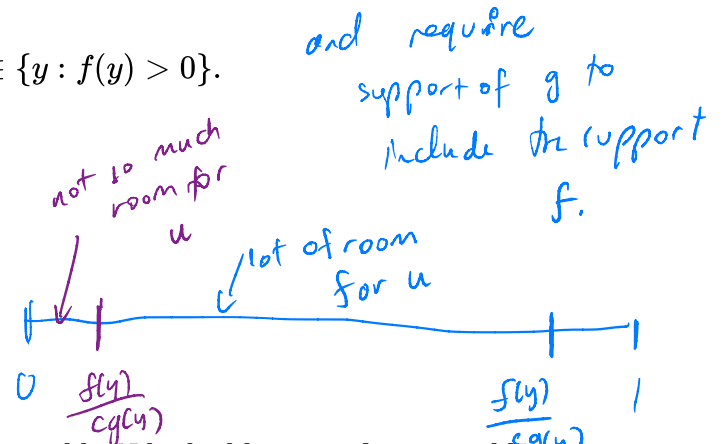 and require
{y : f(y) > 0}.
support of g to
include the support
f.
not so much
room for
u
lot of room
for u
0
f(y)
cg(y)
f(y)
cg(y)
1